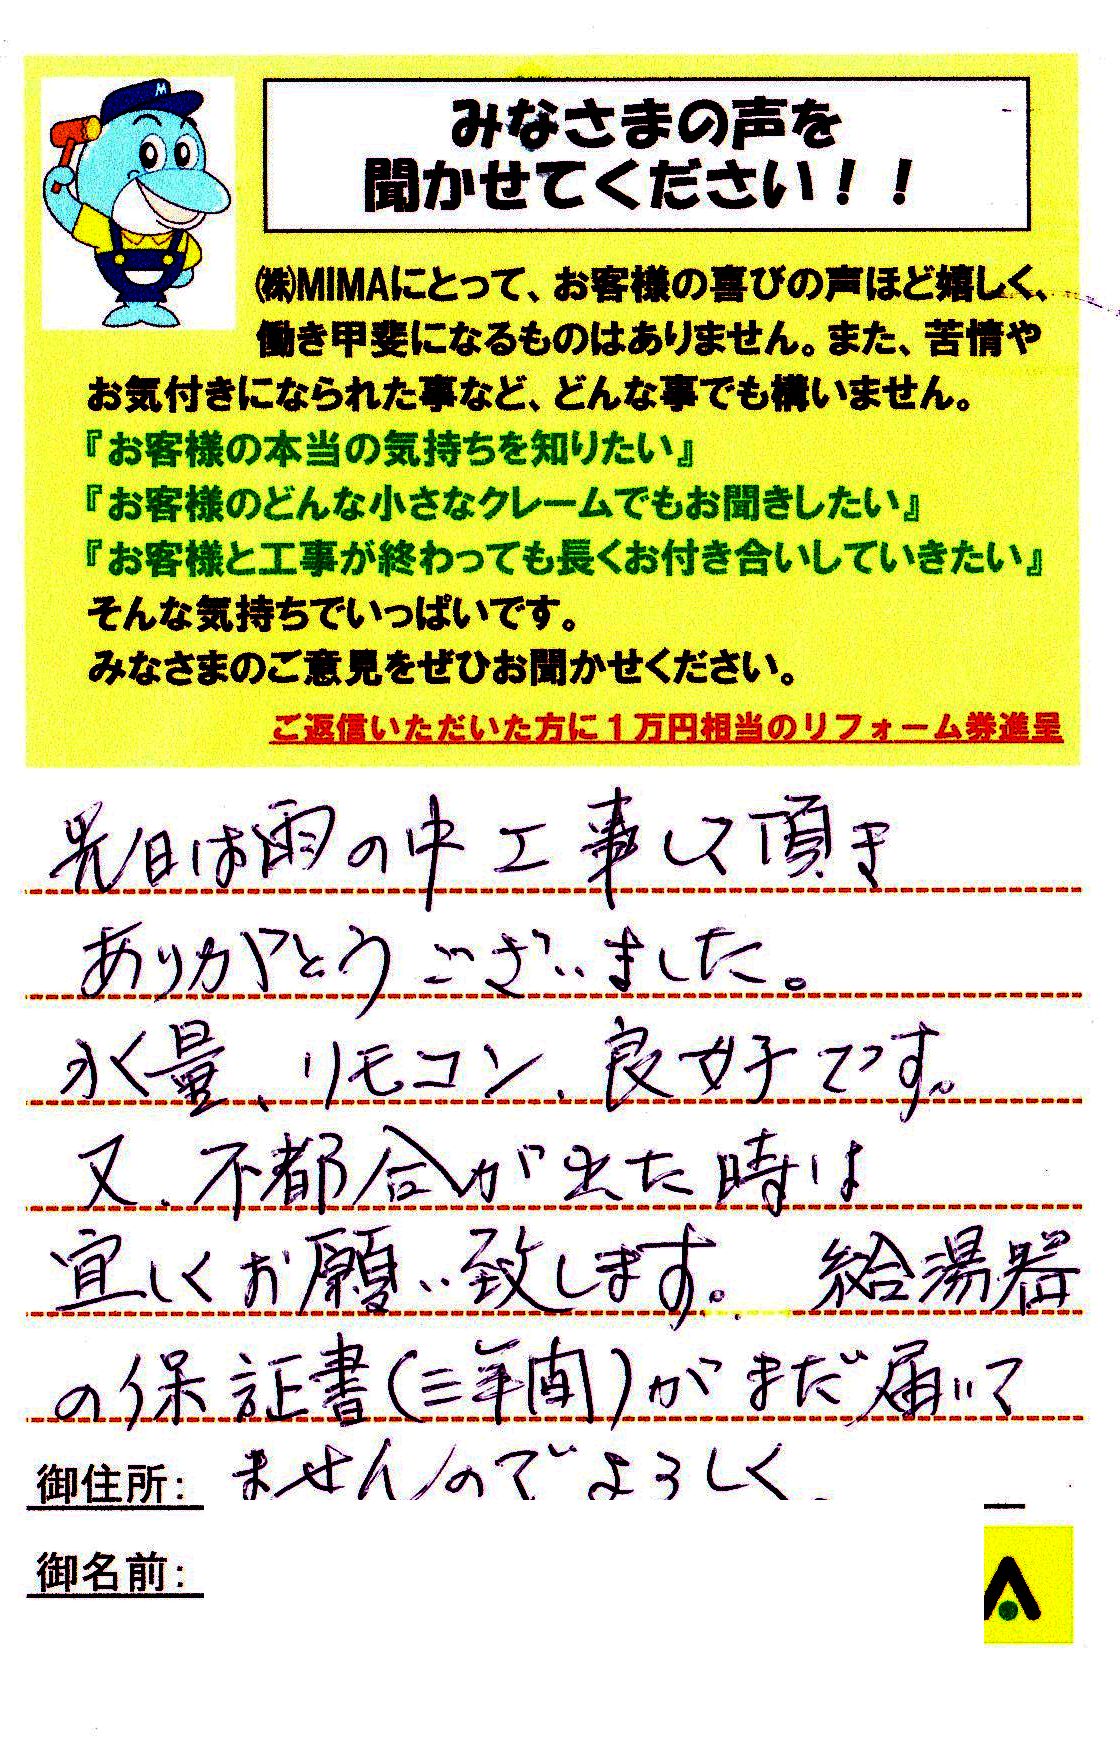 M
みなさまの声を
聞かせてください！！
㈱MIMAにとって、お客様の喜びの声ほど嬉しく、
働き甲斐になるものはありません。また、苦情や
お気付きになられた事など、どんな事でも構いません。
『お客様の本当の気持ちを知りたい』
『お客様のどんな小さなクレームでもお聞きしたい』
『お客様と工事が終わっても長くお付き合いしていきたい』
そんな気持ちでいっぱいです。
みなさまのご意見をぜひお聞かせください。
ご返信いただいた方に１万円相当のリフォーム券進呈
先日は雨の中工事して頂き
ありがとうございました。
水量、リモコン、良好です。
又、不都合が出た時は
宜しくお願い致します。 給湯器
の保証書(三年間)がまだ届いて
御住所： ませんのでよろしく
御名前：